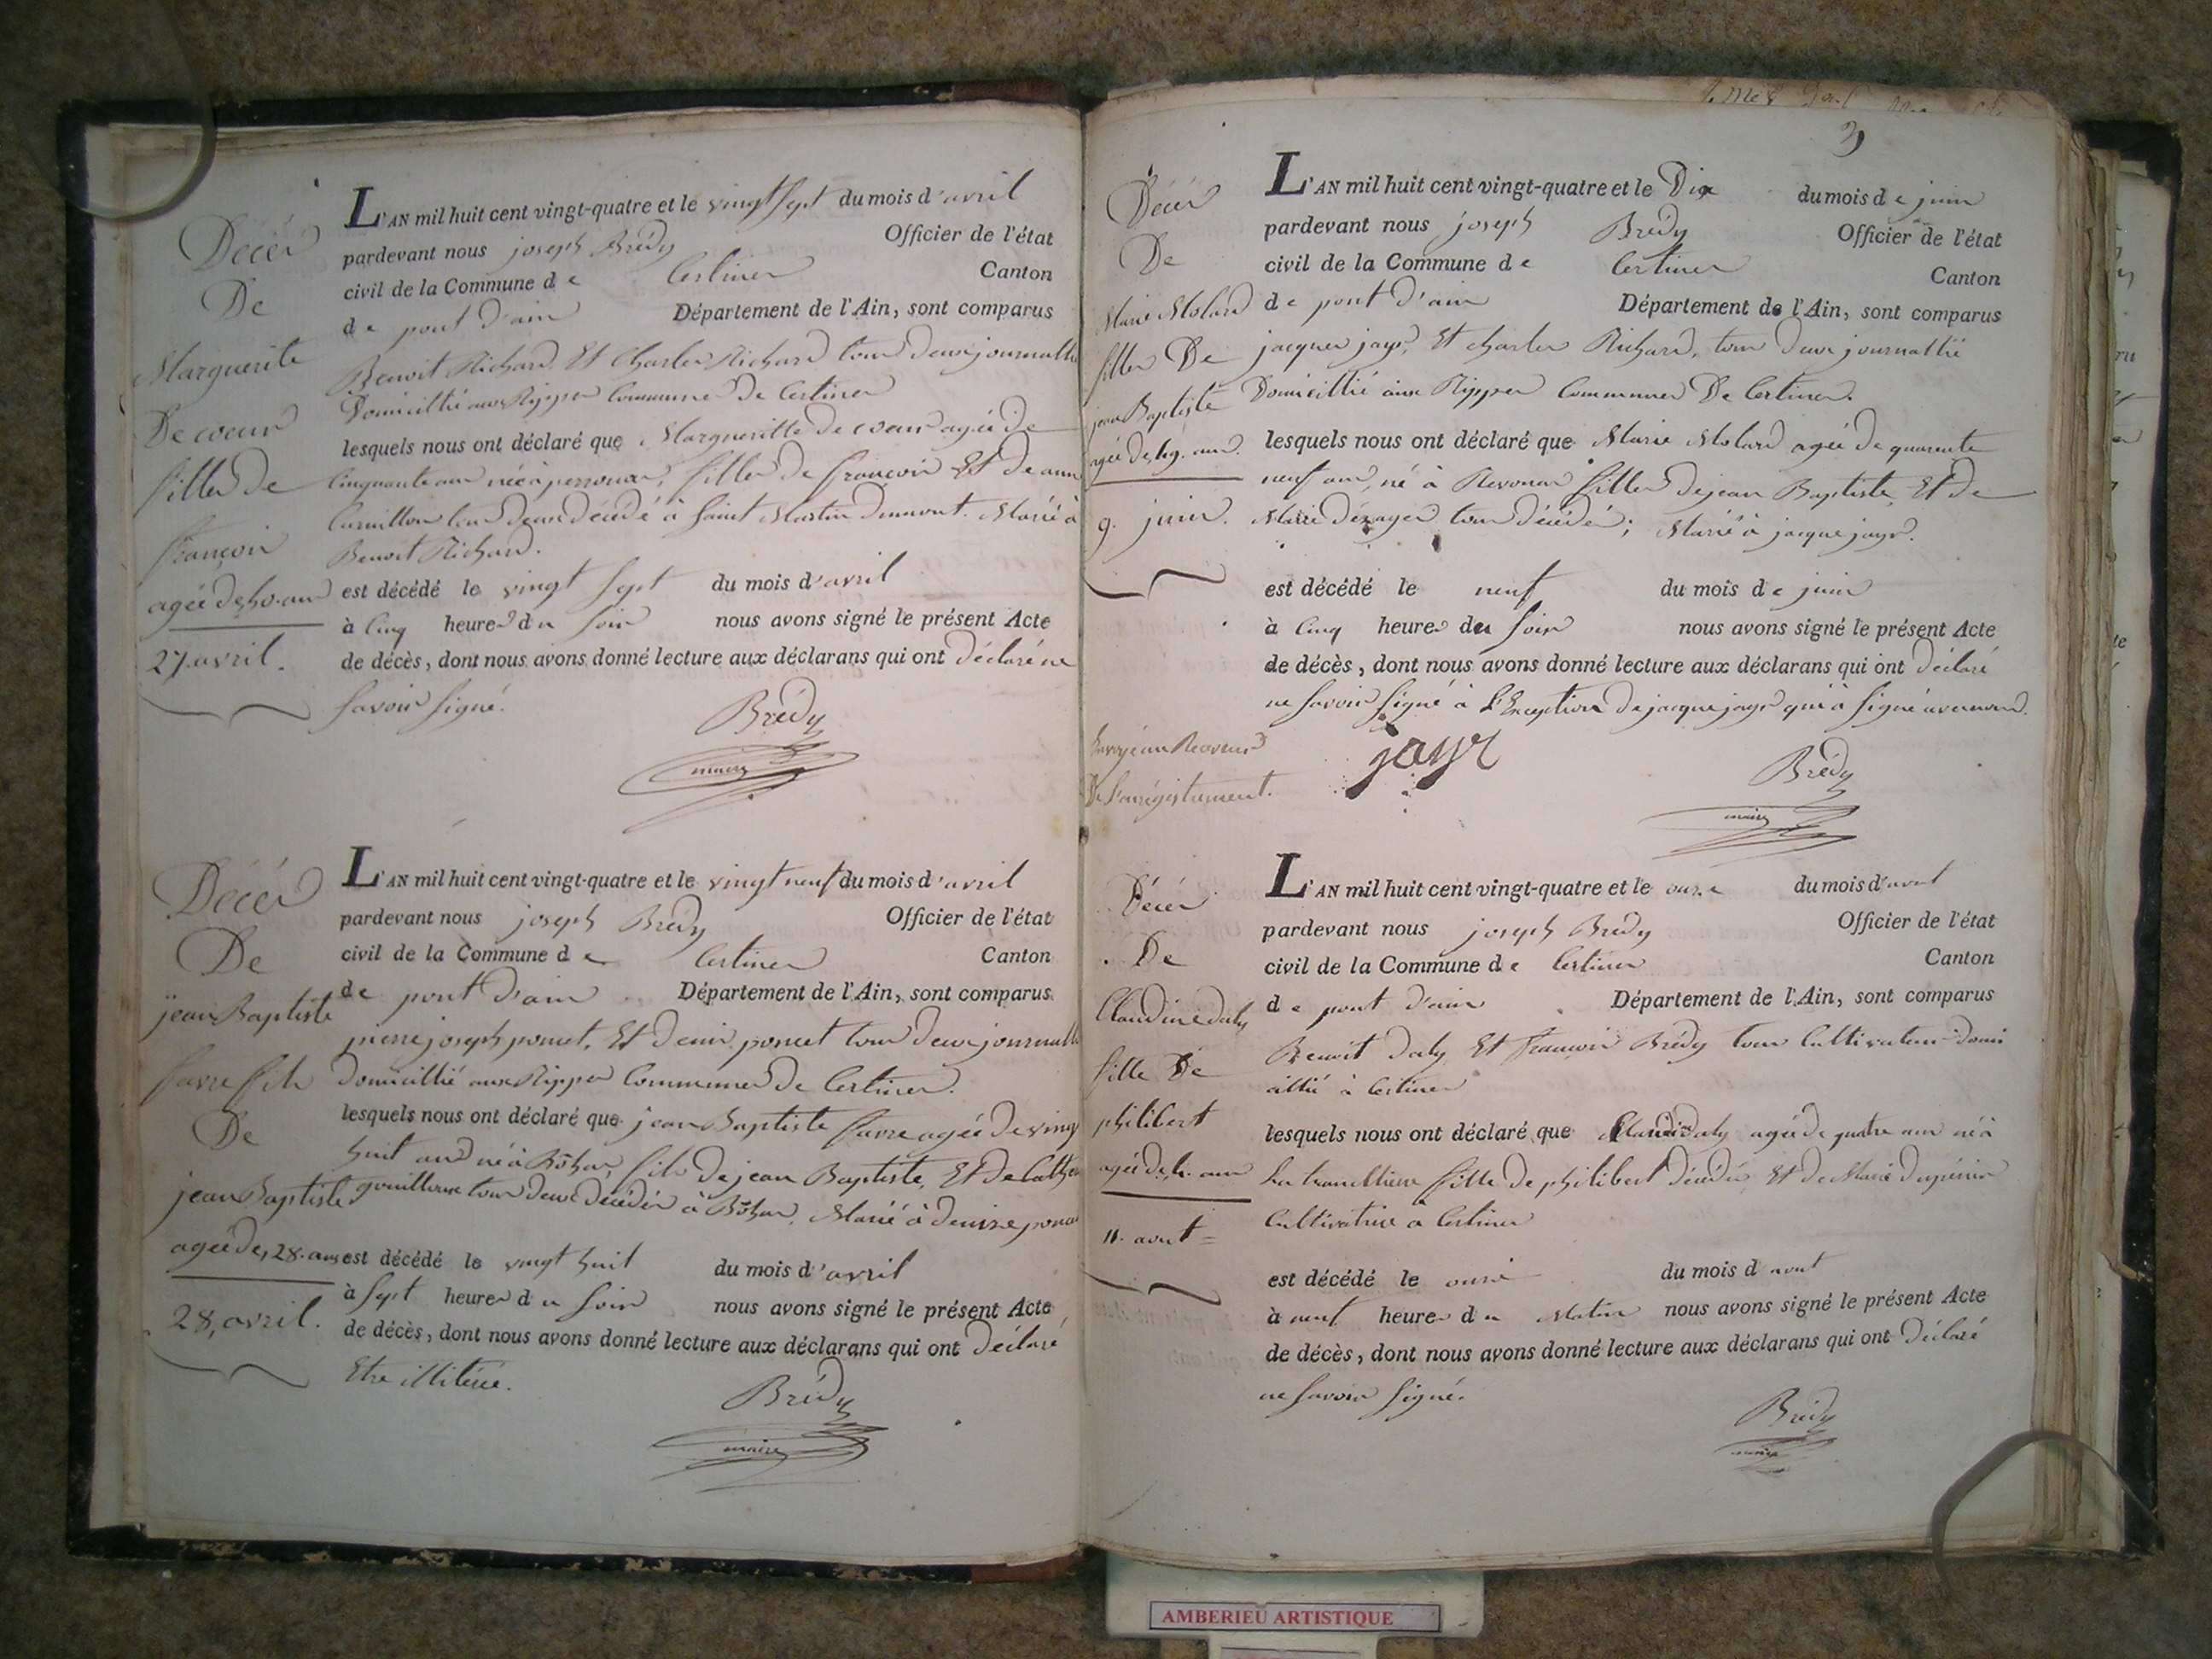 Décès
De
Marguerite
De coeur
filles de
françois
agée de, 50. ans
27. avril.
L'AN mil huit cent vingt-quatre et le vingt sept du mois d'avril
pardevant nous joseph Brédy Officier de l'état
civil de la Commune de Certines Canton
de pont d'ain Département de l'Ain, sont comparus
Benoit Richard, Et Charles Richard tous deux journallié
Domicillié aux Rippes Commune De Certines
lesquels nous ont déclaré que Margueritte de coeur agée de
Cinquante ans née à perronas, filles de françois Et de anne
tous deux décédé à Saint Martin Dumont. Marié à
Benoit Richard.
est décédé le vingt sept du mois d'avril
à Cinq heures du soir nous avons signé le présent Acte
de décès, dont nous avons donné lecture aux déclarans qui ont déclaré ne
savoir signé.
Brédy
maire
Décès
De
jean Baptiste
favre fils
De
jean Baptiste
agée de, 28. ans
28, avril.
L'AN mil huit cent vingt-quatre et le vingt neuf du mois d'avril
pardevant nous joseph Brédy Officier de l'état
civil de la Commune de Certines Canton
de pont D'ain Département de l'Ain, sont comparus
pierre joseph poncet, Et Denis poncet tous Deux journallié
Domicillié aux Rippes Communes De Certines.
lesquels nous ont déclaré que jean Baptiste favre agée De vingt
huit ans né à Bõhas, fils De jean Baptiste, Et De Cathe
tous deux Décédés à Bõhas, Marié à Denise ponce
est décédé le vingt huit du mois d'avril
à Sept heures du Soir nous avons signé le présent Acte
de décès, dont nous avons donné lecture aux déclarans qui ont Déclaré
Etre illiteré.
Brédy
maire
Décès
De
Marie Molard
filles De
jean Baptiste
agée de, 49. ans.
9. juin.
L'AN mil huit cent vingt-quatre et le Dix du mois de juin
pardevant nous joseph Brédy Officier de l'état
civil de la Commune de Certines Canton
de pont D'ain Département de l'Ain, sont comparus
jacques jayr, Et charles Richard, tous deux journallié
Domicillié aux Rippes Communes De Certines.
lesquels nous ont déclaré que Marie Molard agée de quarente
neuf ans, né à Revonas filles de jean Baptiste, Et de
Marie tous décédés; Marié à jacque jayr.
est décédé le neuf du mois de juin
à Cinq heures du Soir nous avons signé le présent Acte
de décès, dont nous avons donné lecture aux déclarans qui ont déclaré
ne savoir signé à L'Exception de jacque jayr qui à signé avec nous.
De L'anrégistrement.
jayr
Brédy
maire
Décès
De
Claudine daly
fille De
philibert
agée de, 4. ans
11. aout =
L'AN mil huit cent vingt-quatre et le onze du mois d'aout
pardevant nous joseph Brédy Officier de l'état
civil de la Commune de Certines Canton
de pont d'ain Département de l'Ain, sont comparus
Benoit Daly Et françois Brédy tous Cultivateurs domi
cillié à Certines
lesquels nous ont déclaré que Claudine daly agée de quatre ans né à
La tranclière fille De philibert Décédé Et de Marie
Cultivatrice à Certines
est décédé le onze du mois d aout
à neuf heures du Matin nous avons signé le présent Acte
de décès, dont nous avons donné lecture aux déclarans qui ont Déclaré
ne savoir signé.
Brédy
maire
AMBERIEU ARTISTIQUE